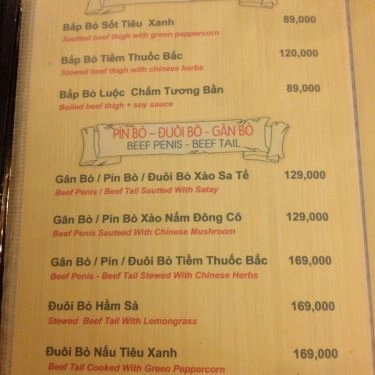 Bắp Bò Sốt Tiêu Xanh 89,000
Sautted beef thigh with green peppercorn
Bắp Bò Tiềm Thuốc Bắc 120,000
Stewed beef thigh with chinese herbs
Bắp Bò Luộc Chấm Tương Bần 89,000
Boiled beef thigh + soy sauce
PÍN BÒ – ĐUÔI BÒ - GÂN BÒ
BEEF PENIS - BEEF TAIL
Gân Bò / Pín Bò / Đuôi Bò Xào Sa Tế 129,000
Beef Penis / Beef Tail Sautted With Satay
Gân Bò / Pín Bò Xào Nấm Đông Cô 129,000
Beef Penis Sauteed With Chinese Mushroom
Gân Bò / Pín / Đuôi Bò Tiềm Thuốc Bắc 169,000
Beef Penis - Beef Tail Stewed With Chinese Herbs
Đuôi Bò Hầm Sả 169,000
Stewed Beef Tail With Lemongrass
Đuôi Bò Nấu Tiêu Xanh 169,000
Beef Tail Cooked With Green Peppercorn